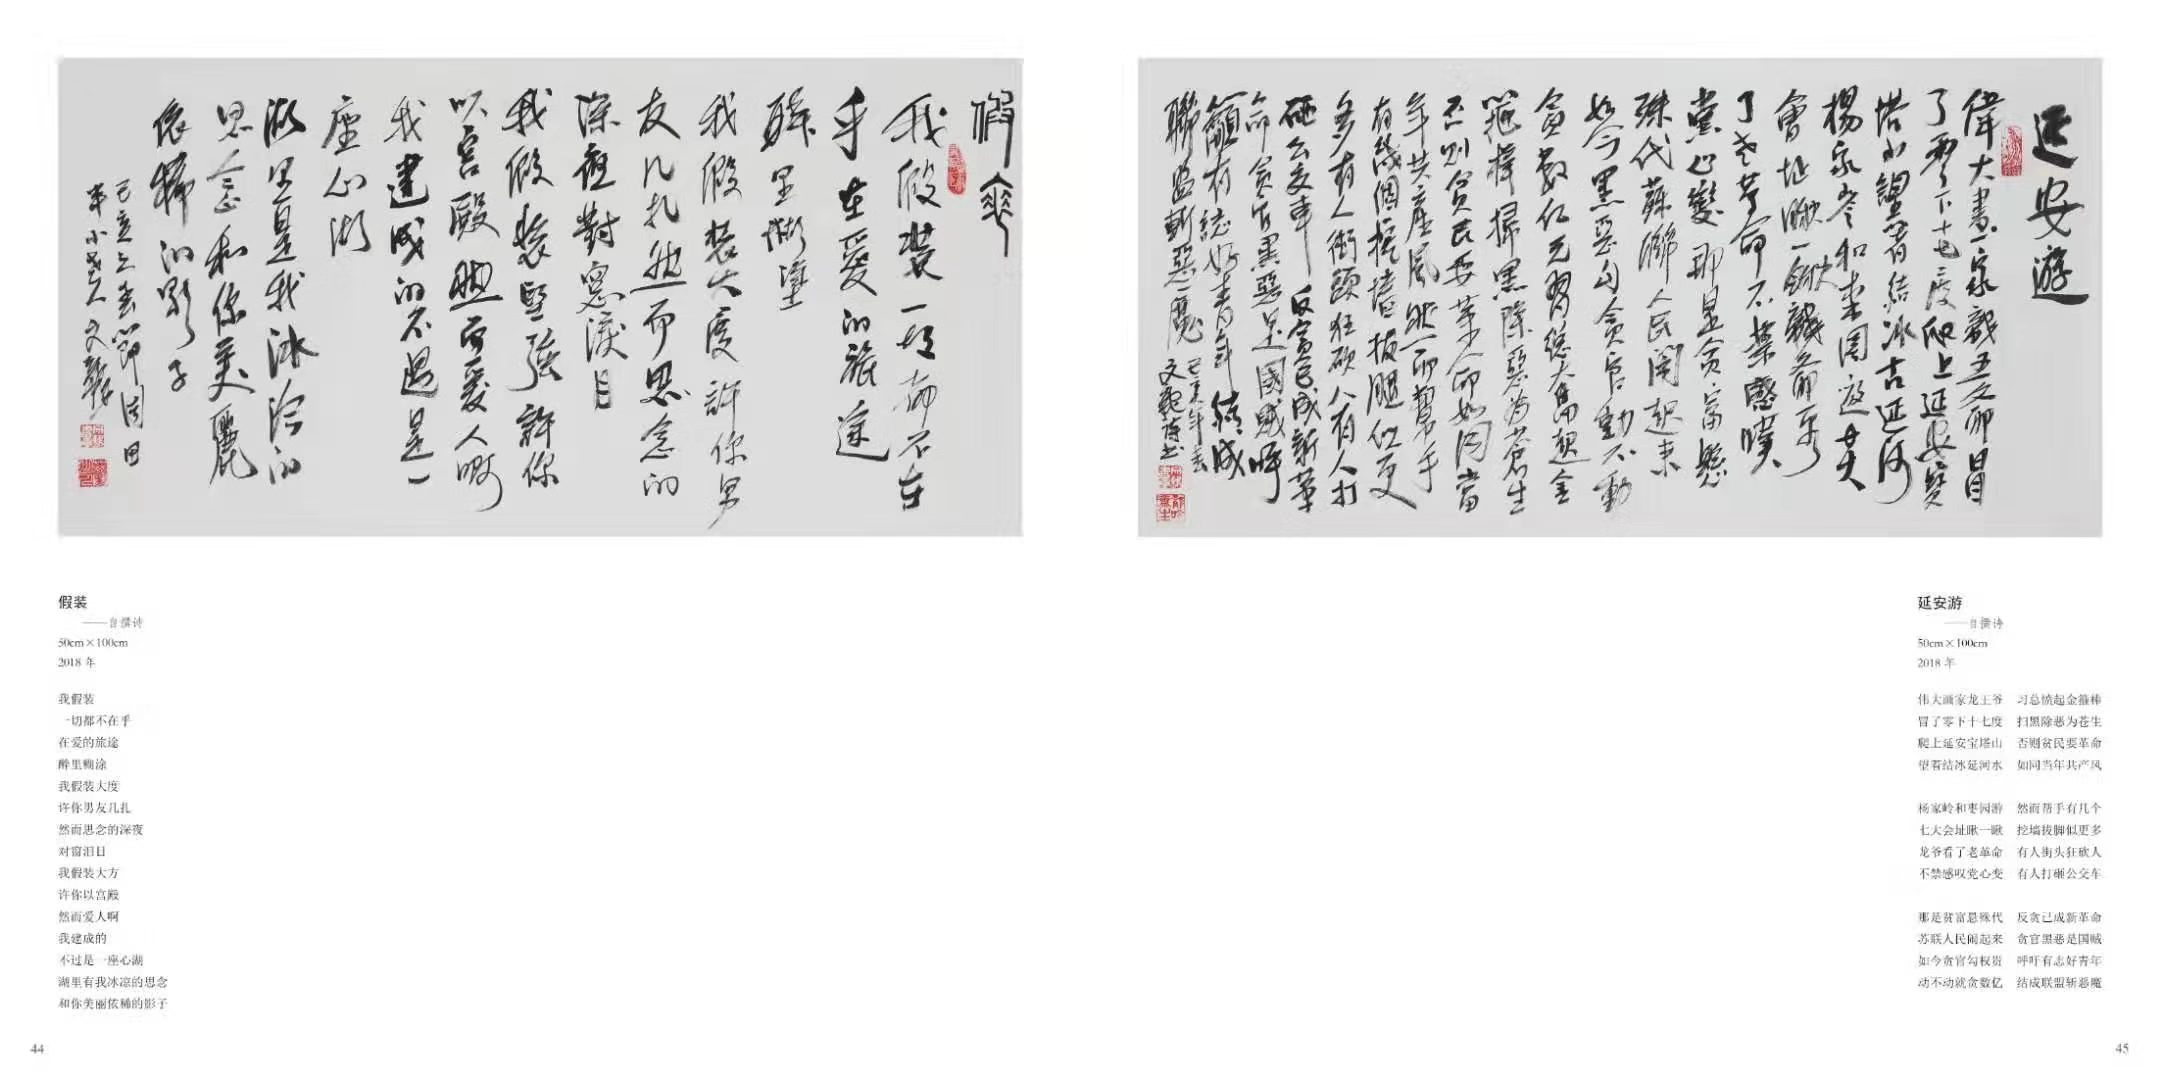 假装
我假装一切都不在
乎在爱的旅途
醉里糊涂
我假装大度许你男
友几扎然而思念的
深夜對窗淚目
我假装堅强許你
以宫殿然而爱人啊
我建成的不過是一
座心湖
湖里是我冰冷的
思念和你美麗
依稀的影子
延安游
偉大畫家龍王爺冒
了零下十七度爬上延安宝
塔山望着結冰古延河
楊家岺和枣園遊七大
會址瞅一瞅龍爺看
了老革命不禁感嘆
黨心變那是貪富懸
殊代蘇聯人民鬧起来
如今黑惡勾貪官動不動
貪數亿元習總大奮起金
箍棒掃黑除惡为苍生
否则贫民要革命如同當
年共産風然而幫手
有幾個挖墙拔腿似更
多有人街頭狂砍人有人打
砸公交車反貪已成新革
命貪官黑惡是國賊呼
籲有志好青年結成
聯盟斬惡魔
假装
——自撰诗
50cm×100cm
2018 年
我假装
一切都不在乎
在爱的旅途
醉里糊涂
我假装大度
许你男友几扎
然而思念的深夜
对窗泪目
我假装大方
许你以宫殿
然而爱人啊
我建成的
不过是一座心湖
湖里有我冰凉的思念
和你美丽依稀的影子
44
延安游
——自撰诗
50cm×100cm
2018 年
伟大画家龙王爷
冒了零下十七度
爬上延安宝塔山
望着结冰延河水
杨家岭和枣园游
七大会址瞅一瞅
龙爷看了老革命
不禁感叹党心变
那是贫富悬殊代
苏联人民闹起来
如今贪官勾权贵
动不动就贪数亿
习总愤起金箍棒
扫黑除恶为苍生
否则贫民要革命
如同当年共产风
然而帮手有几个
挖墙拔脚似更多
有人街头狂砍人
有人打砸公交车
反贪已成新革命
贪官黑恶是国贼
呼吁有志好青年
结成联盟斩恶魔
45